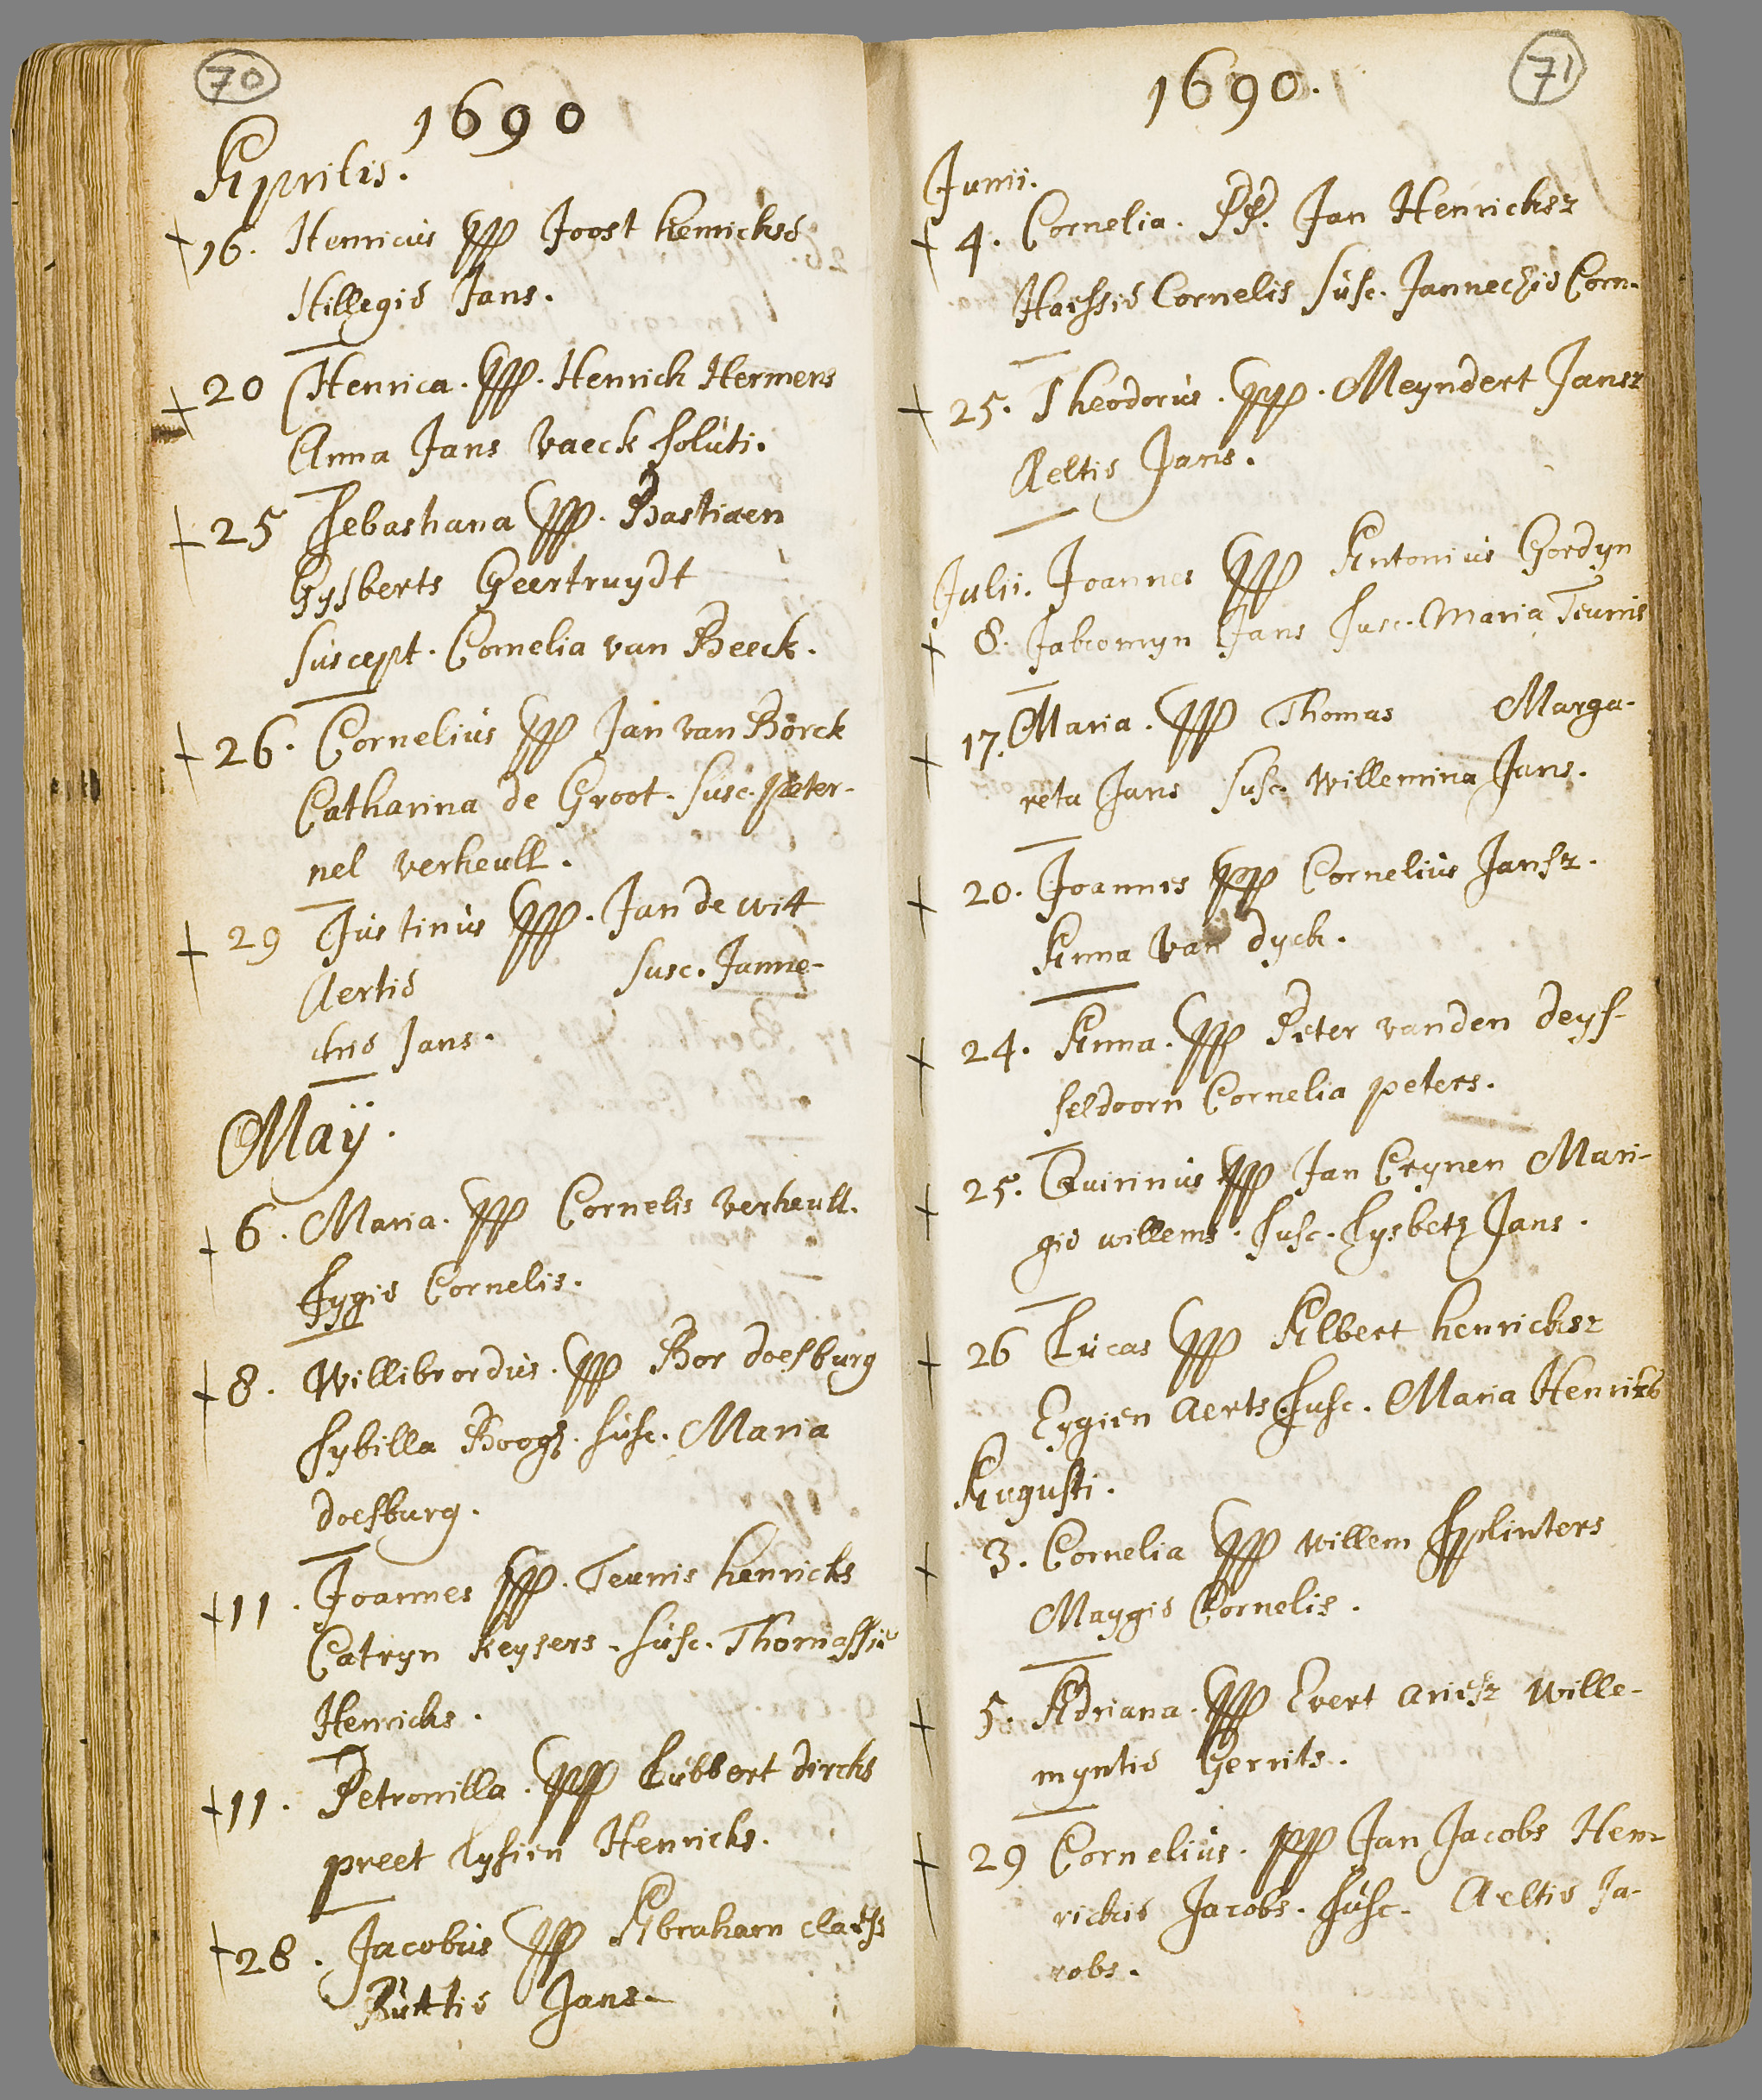 70
1690
Aprilis.
16. Henricus PP Joost henricksd
Hillegid Jans.
20 Henrica. PPP. Henrick Hermens
Anna Jans Vaeck soluti.
25 Sebastiana PPP. Bastiaen
Gysberts Geertruydt
suscept. Cornelia van Beeck.
26. Cornelius PP Jan van Börck
Catharina de Groot. Susc. peter-
nel verheull.
29 Justinus PPP. Jan de wit
Aertid susc. Janne-
chid Jans.
Maÿ.
6. Maria. PPP Cornelis verheull.
Fygid Cornelis.
8. Willibrordus. PPP Bor doesburg
Sybilla Boogs. susc. Maria
doesburg.
11. Joannes PPP. Teunis henricks
Catryn keysers. susc. Thomassid
Henricks.
11. Petronilla. PPP Lubbert dircks
preet Lysien Henricks.
28. Jacobus PPP Abraham claess
Ruttid Jans.
71
1690.
Junii.
4. Cornelia. PP. Jan Henricksz
Haessid Cornelis Susc. Jannechid Corn.
25. Theodorus. PPP. Meyndert Jansz
Aeltid Jans.
Julii. Joannes PPP Antonius Gordyn
8. Jabcomyn Jans Susc. Maria Teunis
17. Maria. PPP Thomas Marga-
reta Jans Susc. Willemina Jans.
20. Joannes PPP Cornelius Jansz.
Anna Van dyck.
24. Anna. PPP Peter vanden deys-
seldoorn Cornelia peters.
25. Quirinus PPP Jan Crynen Mari-
gid willems. susc. Lysbetz Jans.
26 Lucas PPP Albert henricksz
Eygien Aerts. Susc. Maria Henriks
Augusti.
3. Cornelia PPP willem Splinters
Maygid Cornelis.
5. Adriana. PPP Evert ariesz Wille-
myntid Gerrits.
29 Cornelius. PPP Jan Jacobs Hen-
rickid Jacobs. Susc. Aeltid Ja-
cobs.